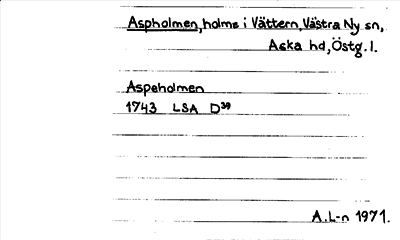 Aspholmen, holme i Vättern, Västra Ny sn,
Aska hd, Östg. l.
Aspeholmen
1743 LSA D³⁹
A.L-n 1971.